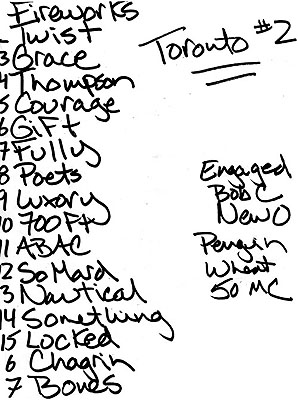 Fireworks
Twist
3 Grace
4 Thompson
5 Courage
6 Gift
7 Fully
8 Poets
9 Luxory
10 700 Ft
11 ABAC
12 So Hard
13 Nautical
14 Something
15 Locked
6 Chagrin
7 Bones
Toronto #2
Engaged
Bob C
New O
Penguin
Wheat
50 MC